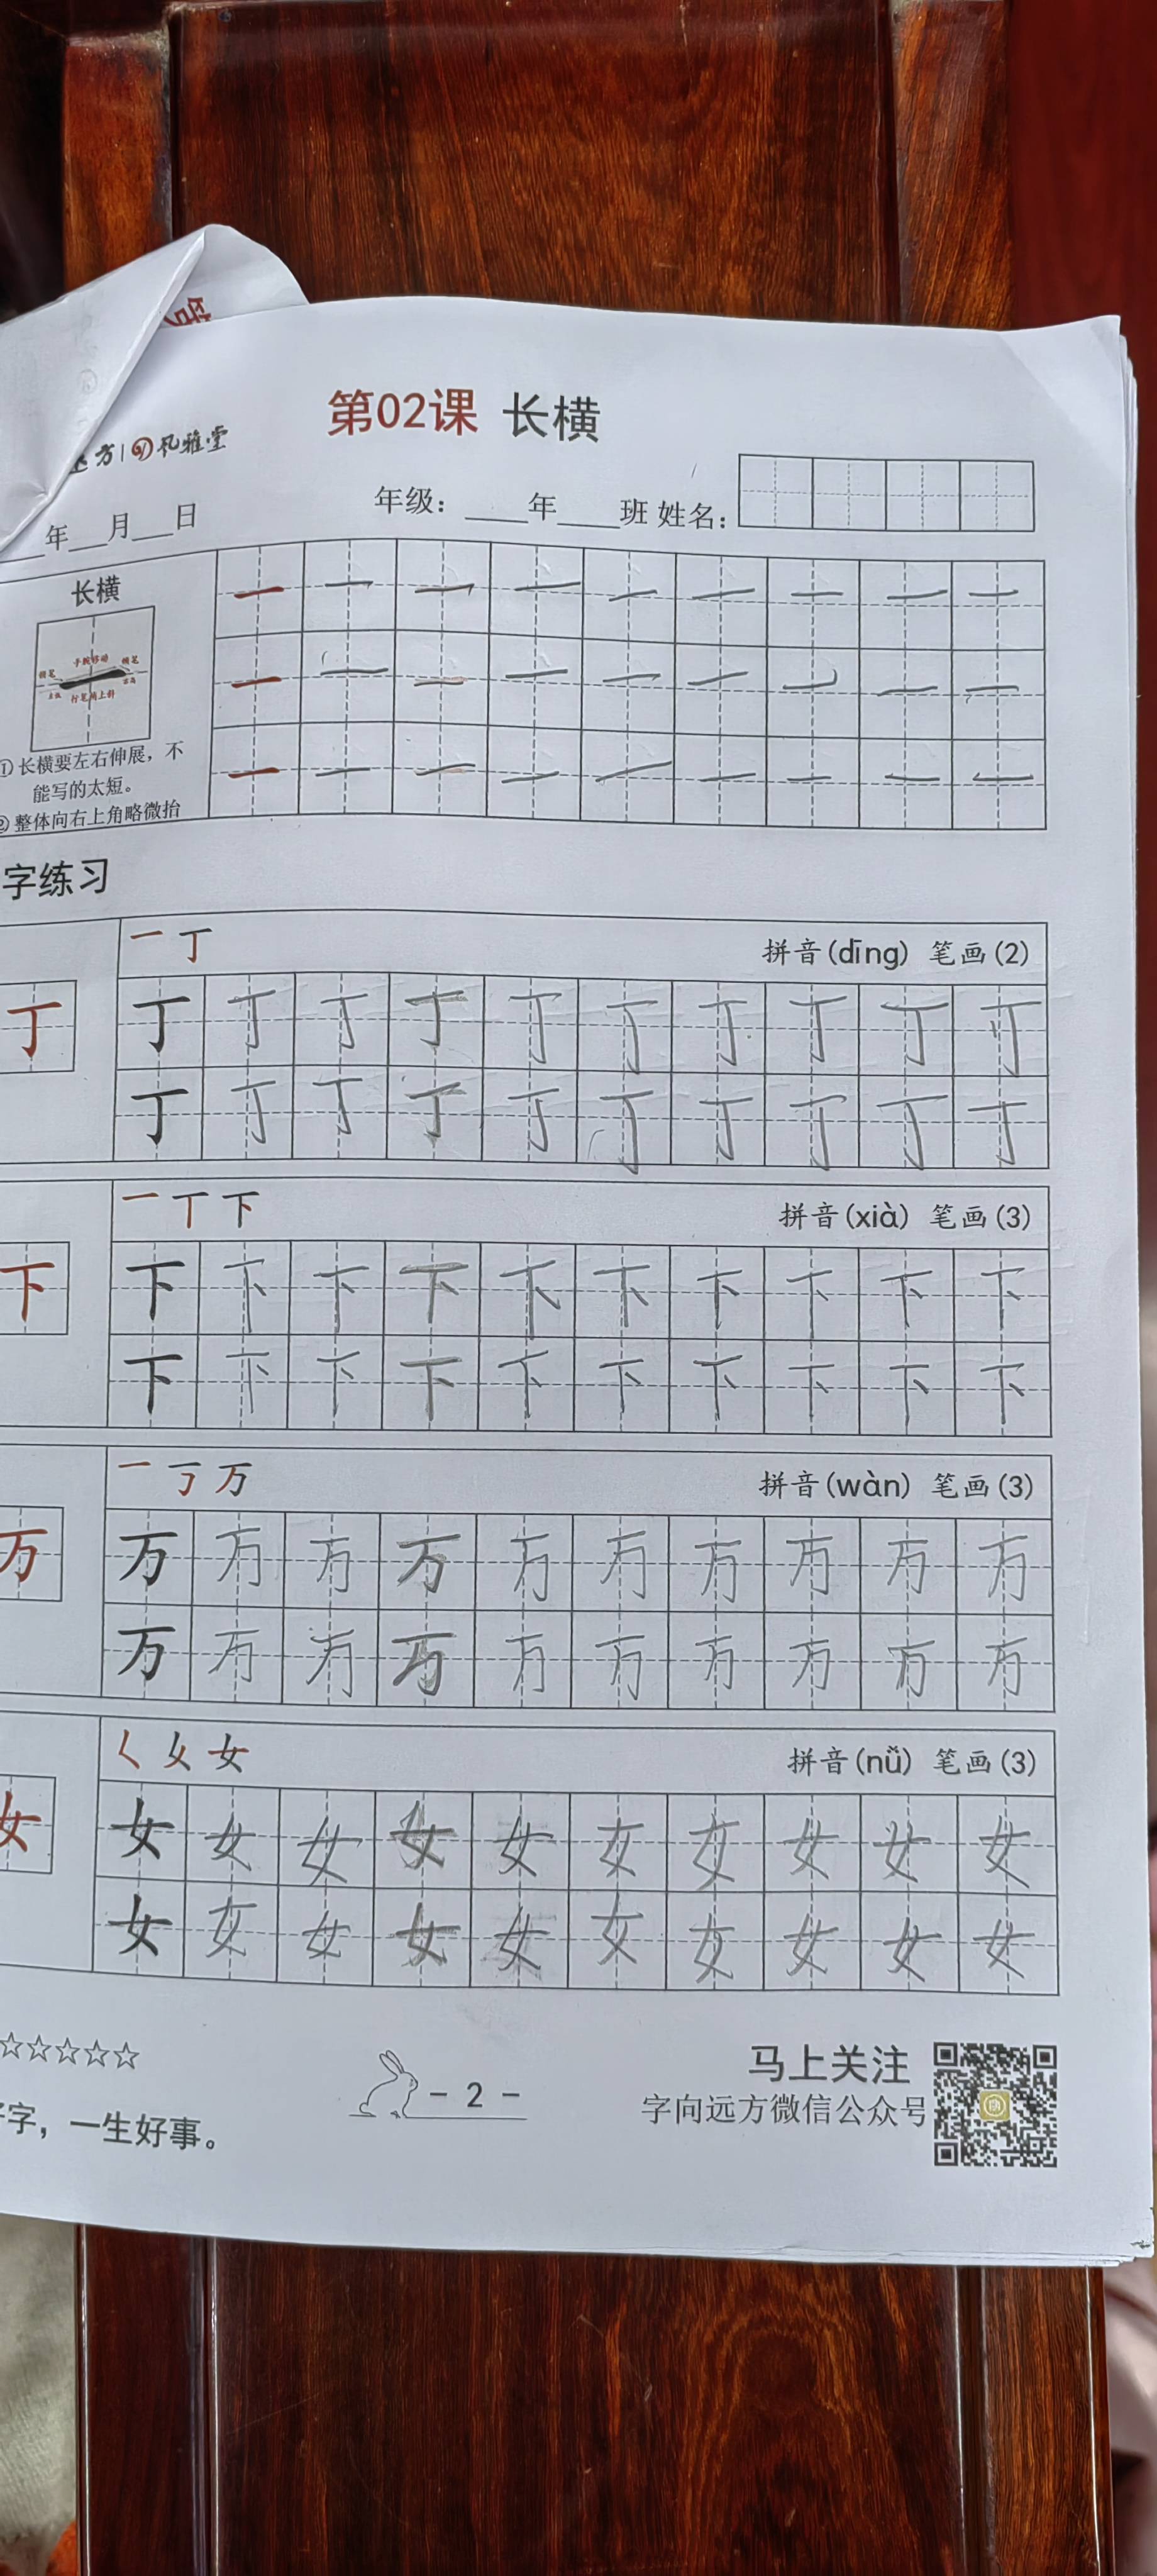 第02课 长横
方 | 风雅堂
年级：____年____班 姓名：
____年___月___日
长横
一 一 一 一 一 一 一 一 一
一 一 一 一 一 一 一 一 一
一 一 一 一 一 一 一 一 一
①长横要左右伸展，不
能写的太短。
②整体向右上角略微抬
字练习
一 丁 拼音(dīng) 笔画(2)
丁
丁 丁 丁 丁 丁 丁 丁 丁 丁 丁
丁 丁 丁 丁 丁 丁 丁 丁 丁 丁
一 丅 下 拼音(xià) 笔画(3)
下
下 下 下 下 下 下 下 下 下 下
下 下 下 下 下 下 下 下 下 下
一 丂 万 拼音(wàn) 笔画(3)
万
万 万 万 万 万 万 万 万 万 万
万 万 万 万 万 万 万 万 万 万
𡿨 乂 女 拼音(nǚ) 笔画(3)
女
女 女 女 女 女 女 女 女 女 女
女 女 女 女 女 女 女 女 女 女
☆☆☆☆☆
字，一生好事。
- 2 -
马上关注
字向远方微信公众号